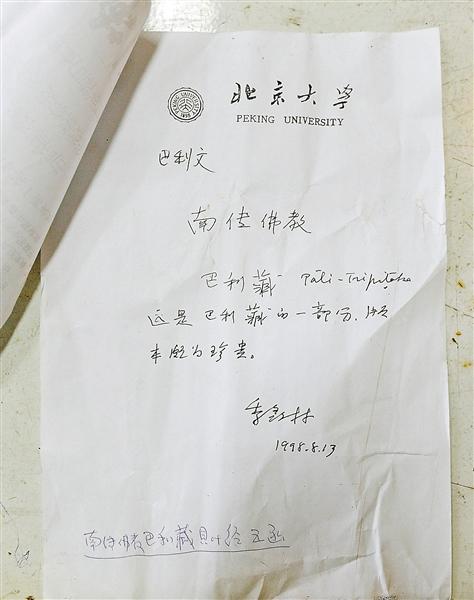 北京大学
PEKING UNIVERSITY
PEKING UNIVERSITY
1898
巴利文
南传佛教
巴利藏 Pāli-Tripiṭaka
这是巴利藏的一部分，版
本颇为珍贵。
季羡林
1998.8.13
南传佛教巴利藏贝叶经五函